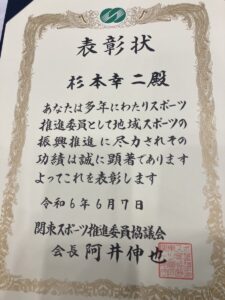 表彰状
杉本幸二殿
あなたは多年にわたりスポーツ
推進委員として地域スポーツの
振興推進に尽力されその
功績は誠に顕著であります
よってこれを表彰します
令和6年6月7日
関東スポーツ推進委員協議会
会長 阿井伸也